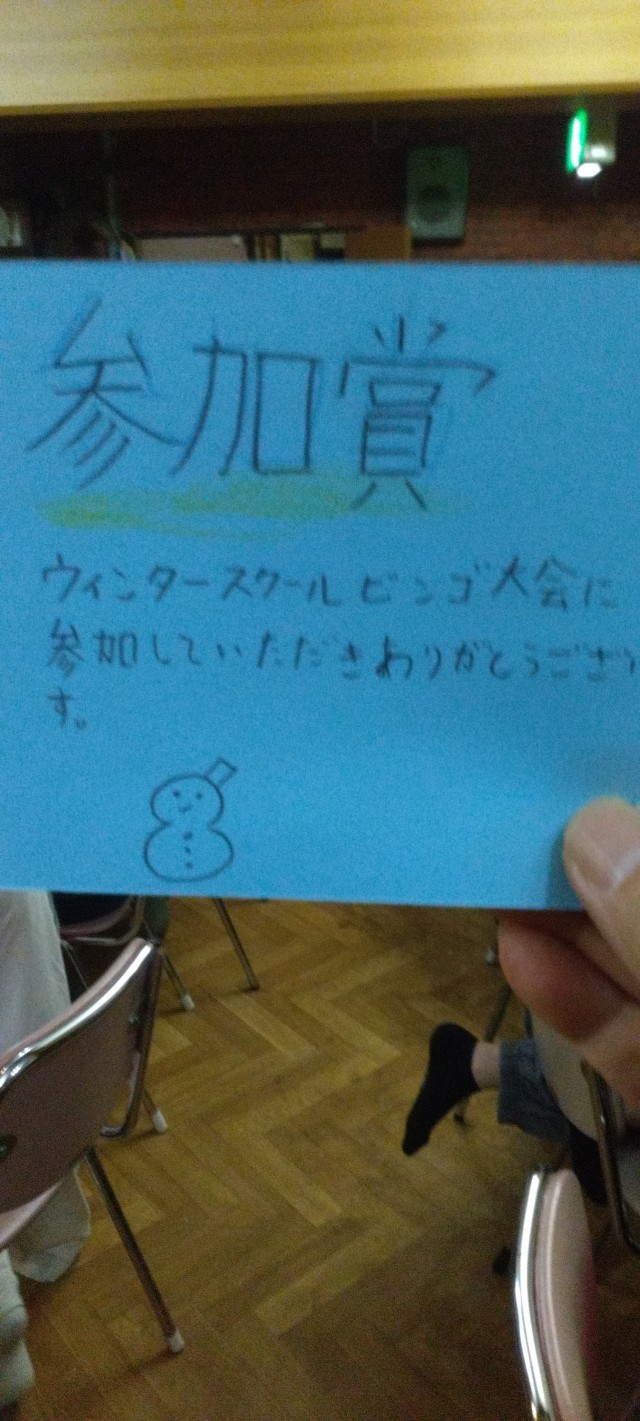 参加賞
ウィンタースクールビンゴ大会に
参加していただきありがとうござい
す。